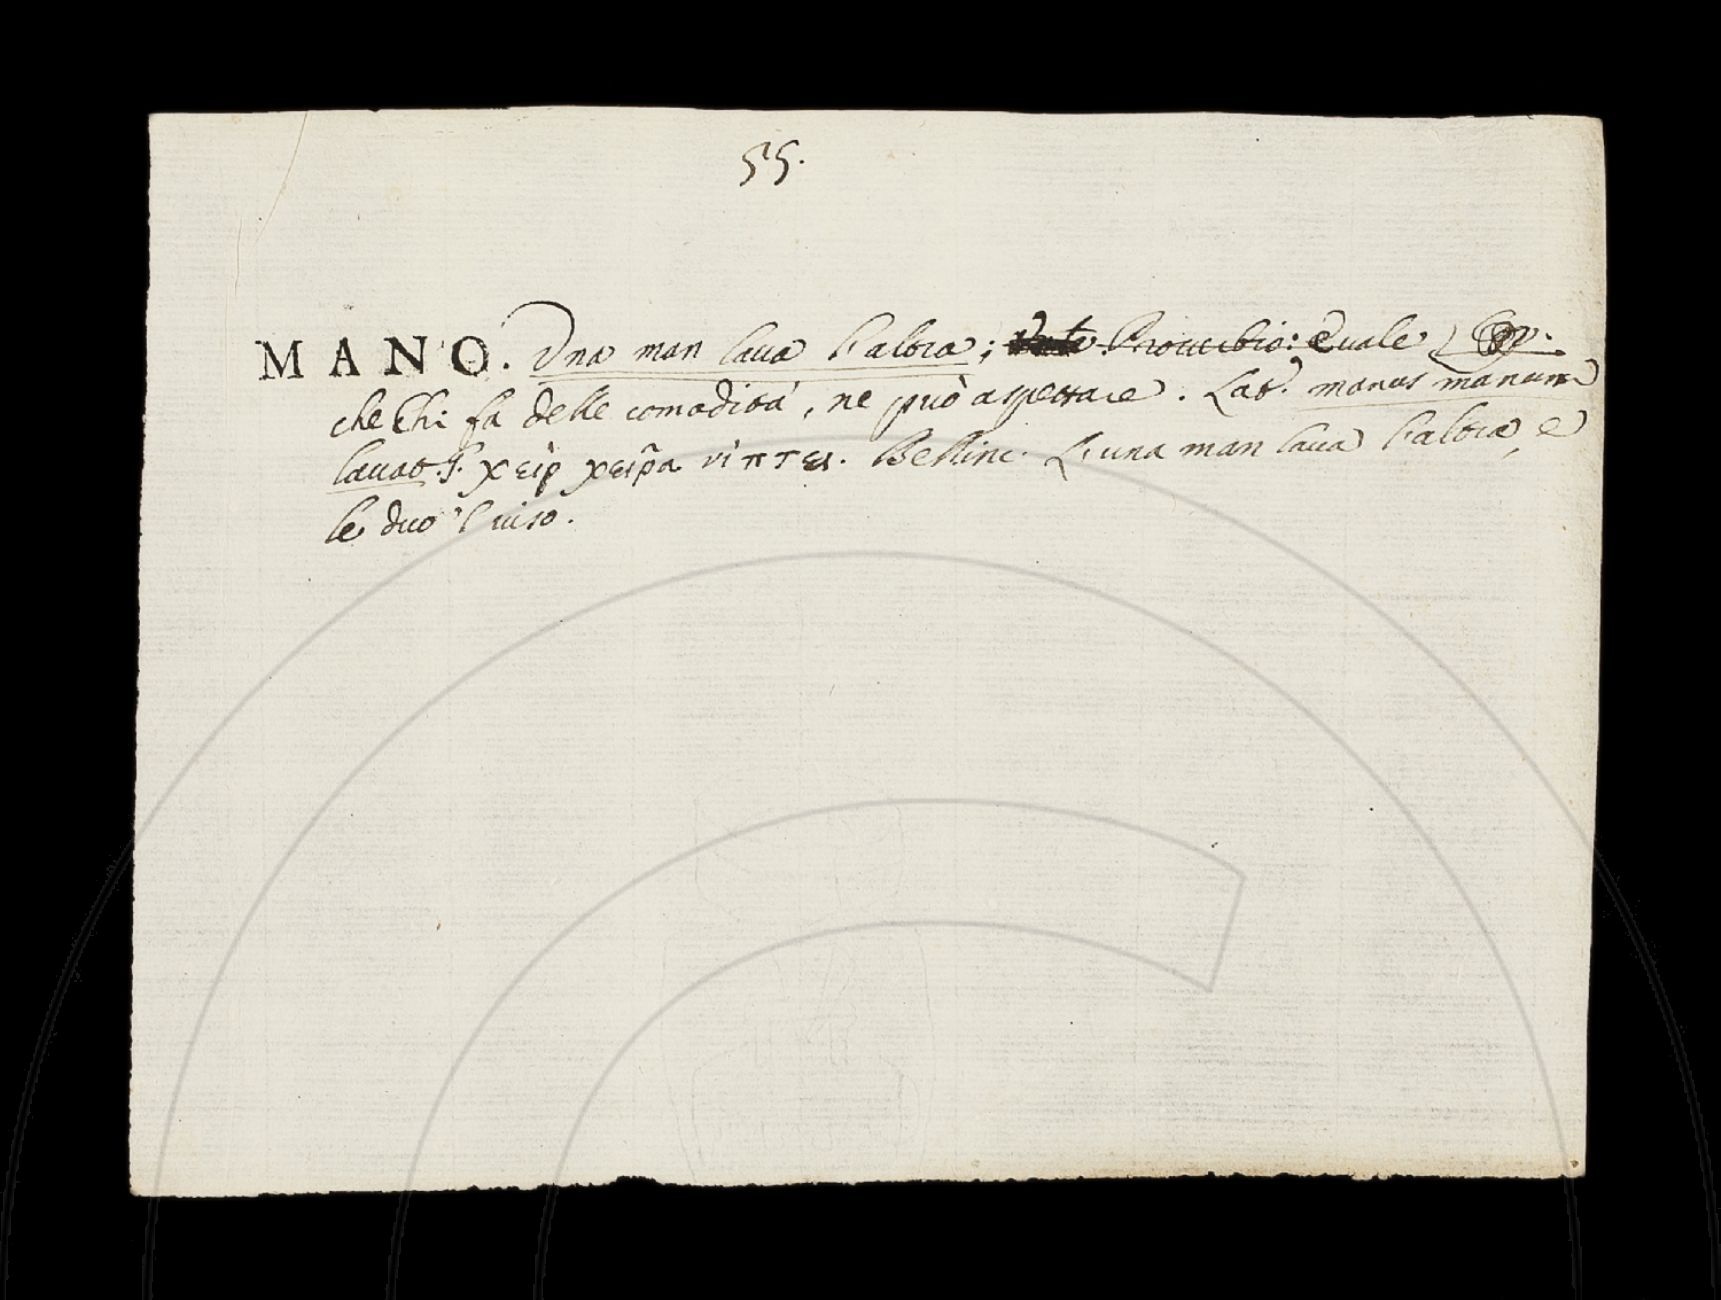 55.
MANO. Una man lava l'altra; Proverbio: e vale
che chi fa delle comodità, ne può aspettare. Lat. manus manum
lavat. χεὶρ χεῖρα νίπτει. Bellinc. L'una man lava l'altra, e
le duo 'l viso.